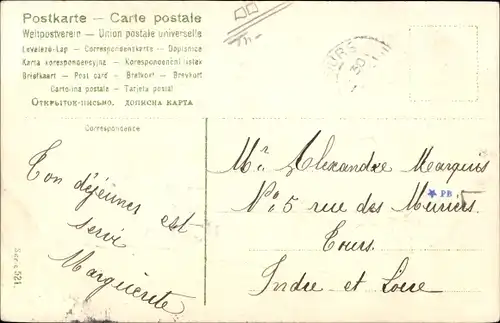 Postkarte — Carte postale
Weltpostverein — Union postale universelle
Levelező-Lap — Correspondenzkarte — Dopisnice
Karta korespondencyjna — Korespondenční lístek
Briefkaart — Post card — Bretkort — Brevkort
Cartolina postale — Tarjeta postal
Открытое письмо. дописна карта
Correspondence
Ton déjeuner est
servi
Marguerite
Mr. Alexandre Marquis
No. 5 rue des Muriers.
Tours.
Indre et Loire
PB
Serie 521.
30